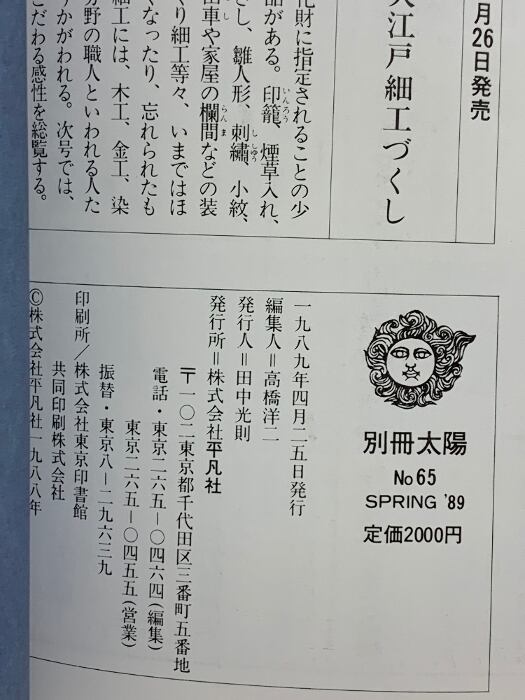 月26日発売
大江戸細工づくし
化財に指定されることの少
品がある。印籠、煙草入れ、
さし、雛人形、刺繡、小紋、
山車や家屋の欄間などの装
くり細工等々、いまではほ
くなったり、忘れられたも
細工には、木工、金工、染
分野の職人といわれる人た
うかがわれる。次号では、
こだわる感性を総覧する。
別冊太陽
No65
SPRING '89
定価2000円
一九八九年四月二五日発行
編集人＝高橋洋二
発行人＝田中光則
発行所＝株式会社平凡社
〒一〇二東京都千代田区三番町五番地
電話・東京二六五―〇四六四(編集)
東京二六五―〇四五五(営業)
振替・東京八―二九六三九
印刷所／株式会社東京印書館
共同印刷株式会社
©株式会社平凡社一九八八年